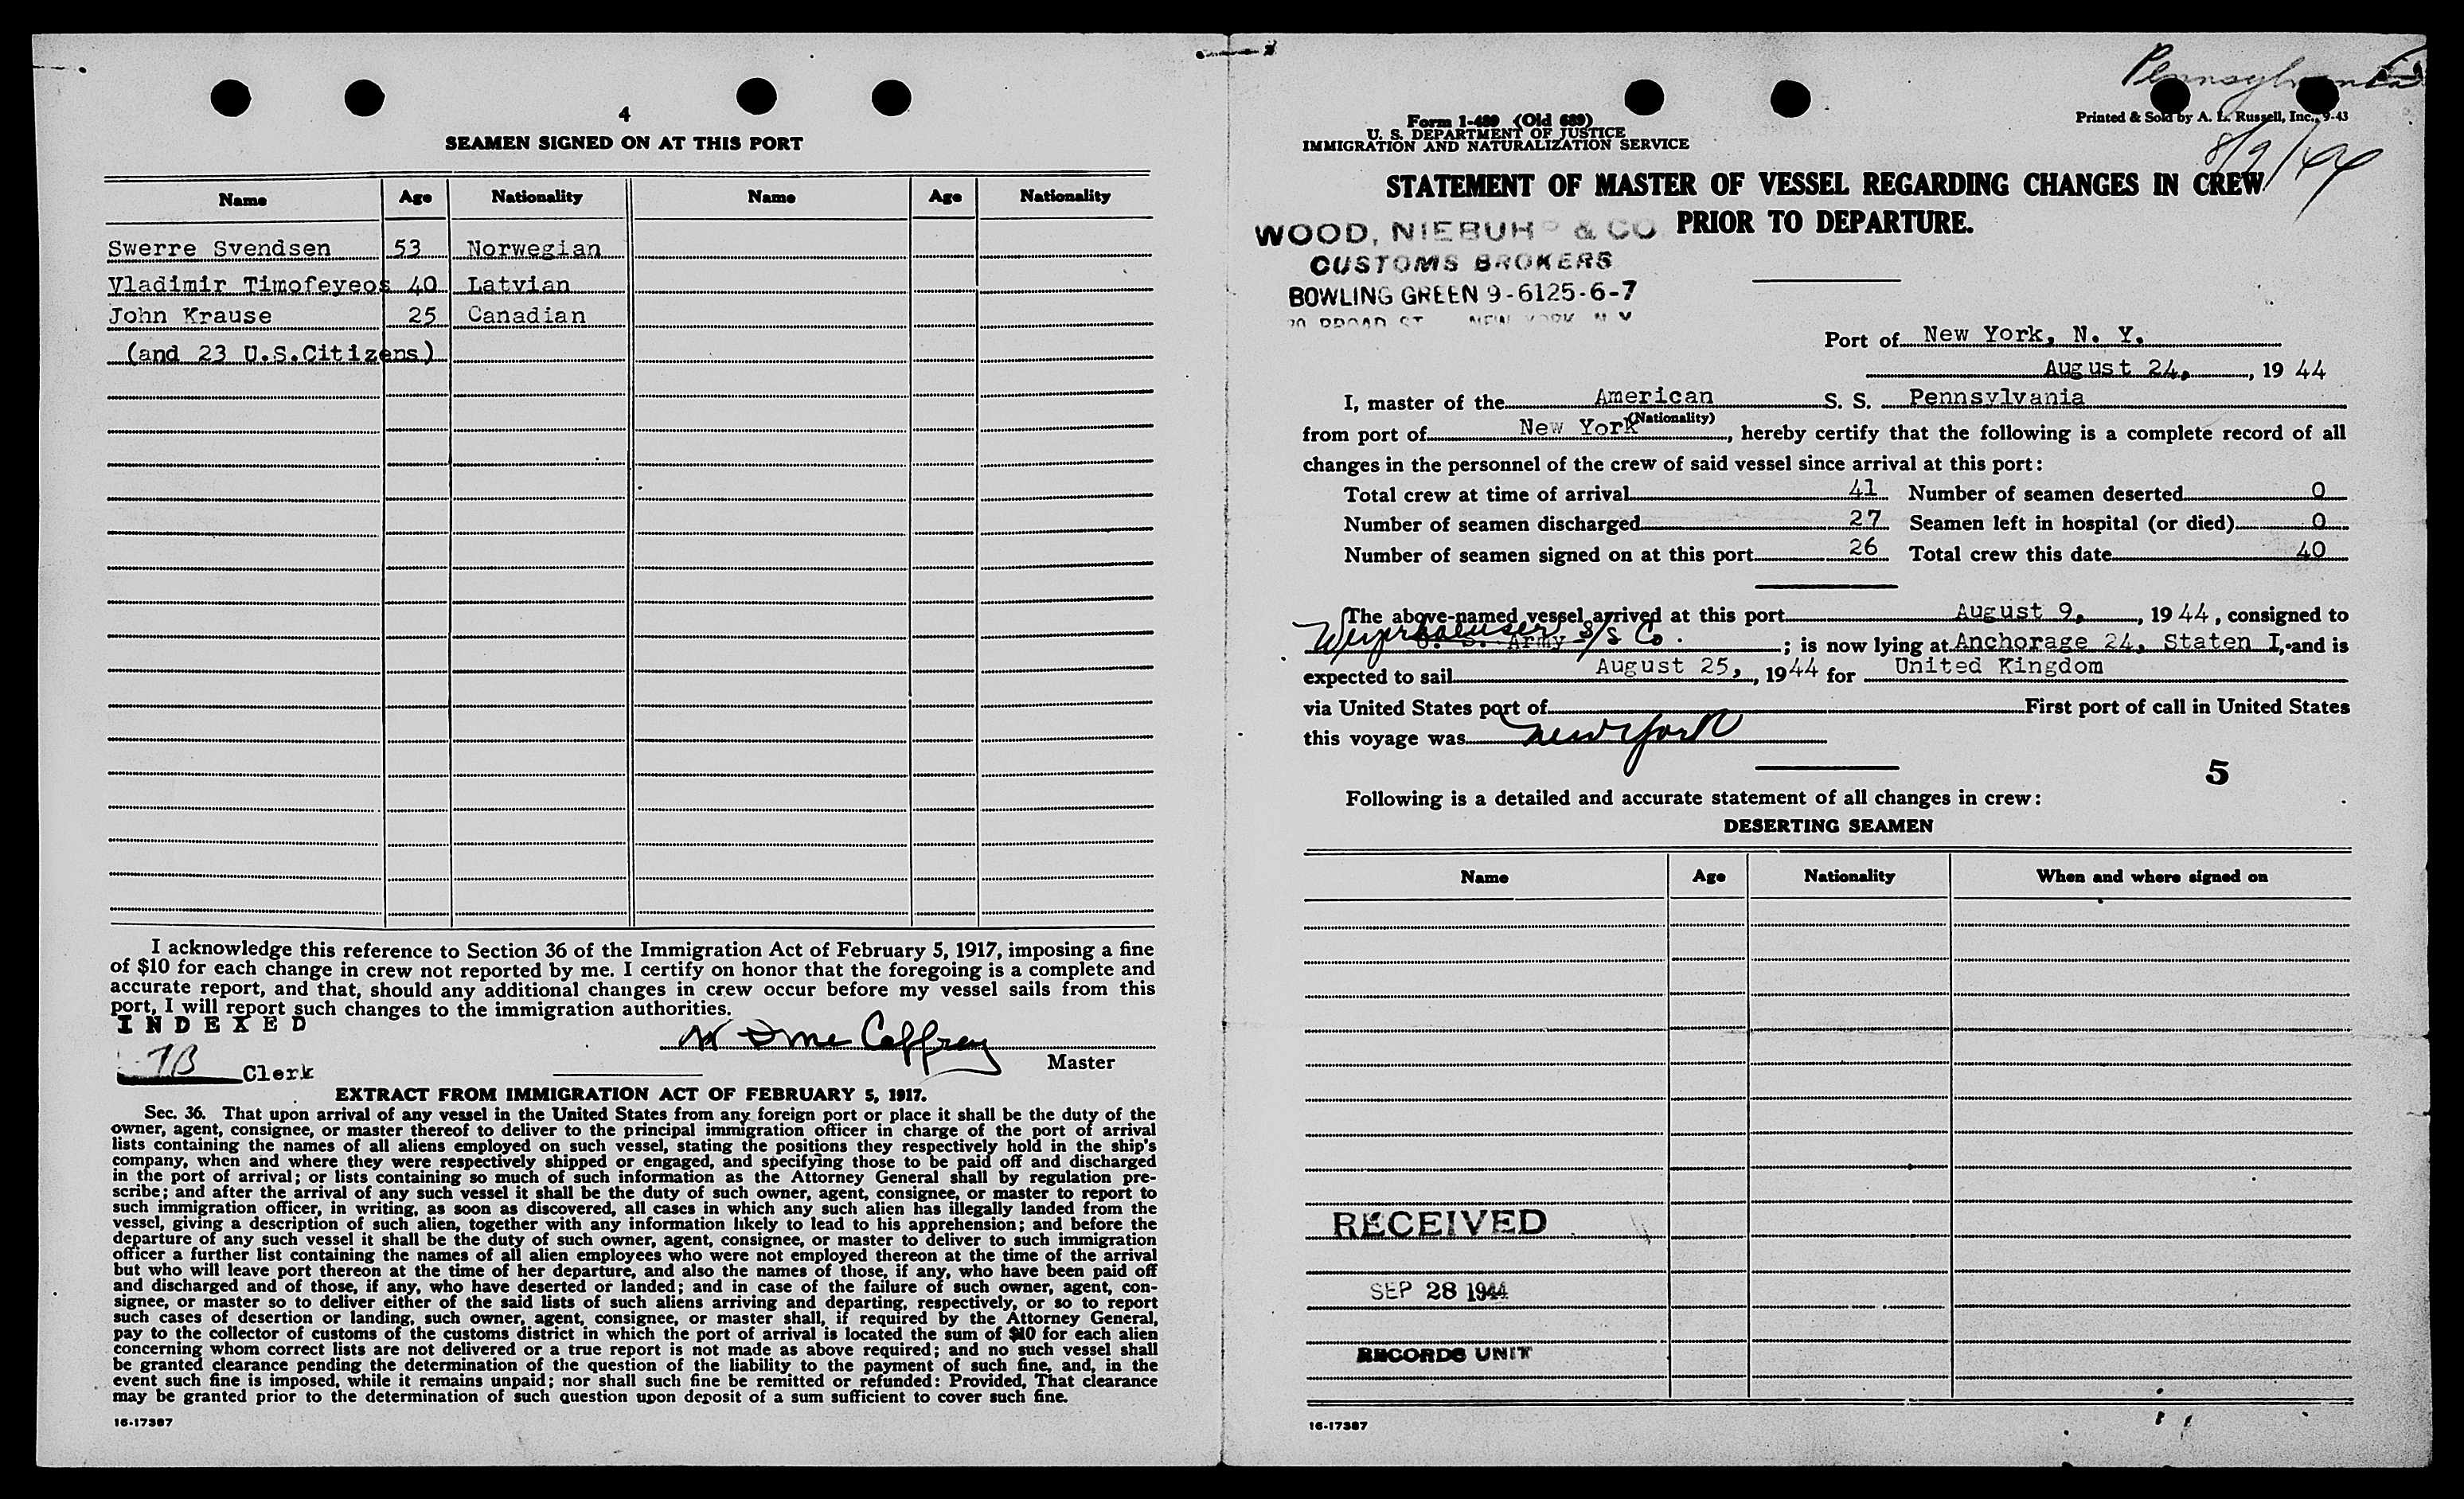 4
SEAMEN SIGNED ON AT THIS PORT
Name Age Nationality Name Age Nationality
Swerre Svendsen 53 Norwegian
Vladimir Timofeyeos 40 Latvian
John Krause 25 Canadian
(and 23 U.S.Citizens)
I acknowledge this reference to Section 36 of the Immigration Act of February 5, 1917, imposing a fine
of $10 for each change in crew not reported by me. I certify on honor that the foregoing is a complete and
accurate report, and that, should any additional changes in crew occur before my vessel sails from this
port, I will report such changes to the immigration authorities.
INDEXED
TB Clerk
Mc Caffrey
Master
EXTRACT FROM IMMIGRATION ACT OF FEBRUARY 5, 1917.
Sec. 36. That upon arrival of any vessel in the United States from any foreign port or place it shall be the duty of the
owner, agent, consignee, or master thereof to deliver to the principal immigration officer in charge of the port of arrival
lists containing the names of all aliens employed on such vessel, stating the positions they respectively hold in the ship's
company, when and where they were respectively shipped or engaged, and specifying those to be paid off and discharged
in the port of arrival; or lists containing so much of such information as the Attorney General shall by regulation pre-
scribe; and after the arrival of any such vessel it shall be the duty of such owner, agent, consignee, or master to report to
such immigration officer, in writing, as soon as discovered, all cases in which any such alien has illegally landed from the
vessel, giving a description of such alien, together with any information likely to lead to his apprehension; and before the
departure of any such vessel it shall be the duty of such owner, agent, consignee, or master to deliver to such immigration
officer a further list containing the names of all alien employees who were not employed thereon at the time of the arrival
but who will leave port thereon at the time of her departure, and also the names of those, if any, who have been paid off
and discharged and of those, if any, who have deserted or landed; and in case of the failure of such owner, agent, con-
signee, or master so to deliver either of the said lists of such aliens arriving and departing, respectively, or so to report
such cases of desertion or landing, such owner, agent, consignee, or master shall, if required by the Attorney General,
pay to the collector of customs of the customs district in which the port of arrival is located the sum of $10 for each alien
concerning whom correct lists are not delivered or a true report is not made as above required; and no such vessel shall
be granted clearance pending the determination of the question of the liability to the payment of such fine, and, in the
event such fine is imposed, while it remains unpaid; nor shall such fine be remitted or refunded: Provided, That clearance
may be granted prior to the determination of such question upon deposit of a sum sufficient to cover such fine.
16-17387
Pennsylvania
8/9/44
Form 1-489 (Old 689)
U. S. DEPARTMENT OF JUSTICE
IMMIGRATION AND NATURALIZATION SERVICE
Printed & Sold by A. L. Russell, Inc., 9-43
STATEMENT OF MASTER OF VESSEL REGARDING CHANGES IN CREW
PRIOR TO DEPARTURE.
WOOD, NIEBUHR & CO
CUSTOMS BROKERS
BOWLING GREEN 9-6125-6-7
BROAD ST. NEW YORK N Y
Port of New York, N. Y.
August 24, , 19 44
I, master of the American S. S. Pennsylvania
(Nationality)
from port of New York , hereby certify that the following is a complete record of all
changes in the personnel of the crew of said vessel since arrival at this port:
Total crew at time of arrival 41 Number of seamen deserted 0
Number of seamen discharged 27 Seamen left in hospital (or died) 0
Number of seamen signed on at this port 26 Total crew this date 40
The above-named vessel arrived at this port August 9, , 19 44 , consigned to
Weyerhaeuser S/S Co. U. S. Army ; is now lying at Anchorage 24, Staten I, and is
expected to sail August 25, , 19 44 for United Kingdom
via United States port of First port of call in United States
this voyage was New York
5
Following is a detailed and accurate statement of all changes in crew:
DESERTING SEAMEN
Name Age Nationality When and where signed on
RECEIVED
SEP 28 1944
RECORDS UNIT
16-17387